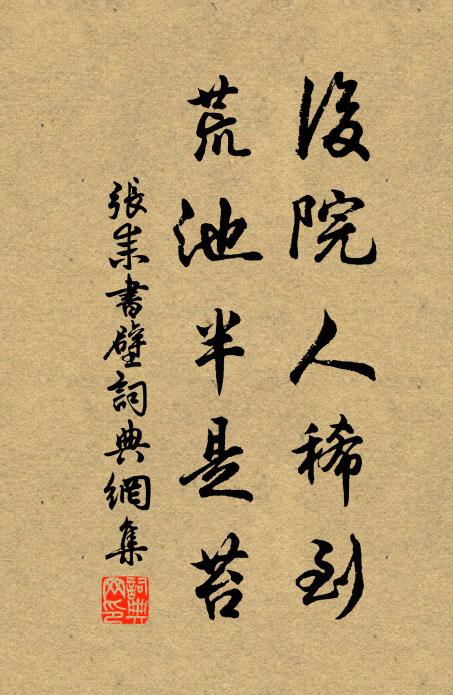 後院人稀到
荒池半是苔
張耒書壁詞典網集
詞典網印